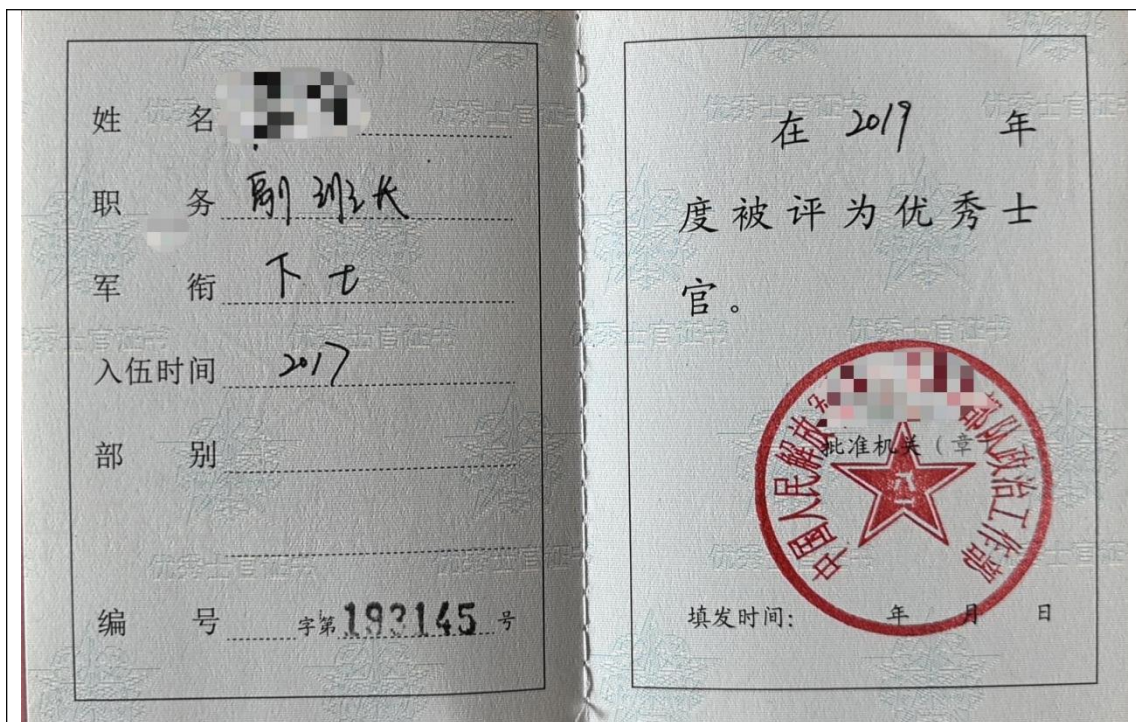 姓名
职务 副班长
军衔 下士
入伍时间 2017
部别
编号 字第193145号
在 2019 年
度被评为优秀士
官。
批准机关（章
中国人民解放 部队政治工作部
八一
填发时间： 年 月 日
优秀士官证书